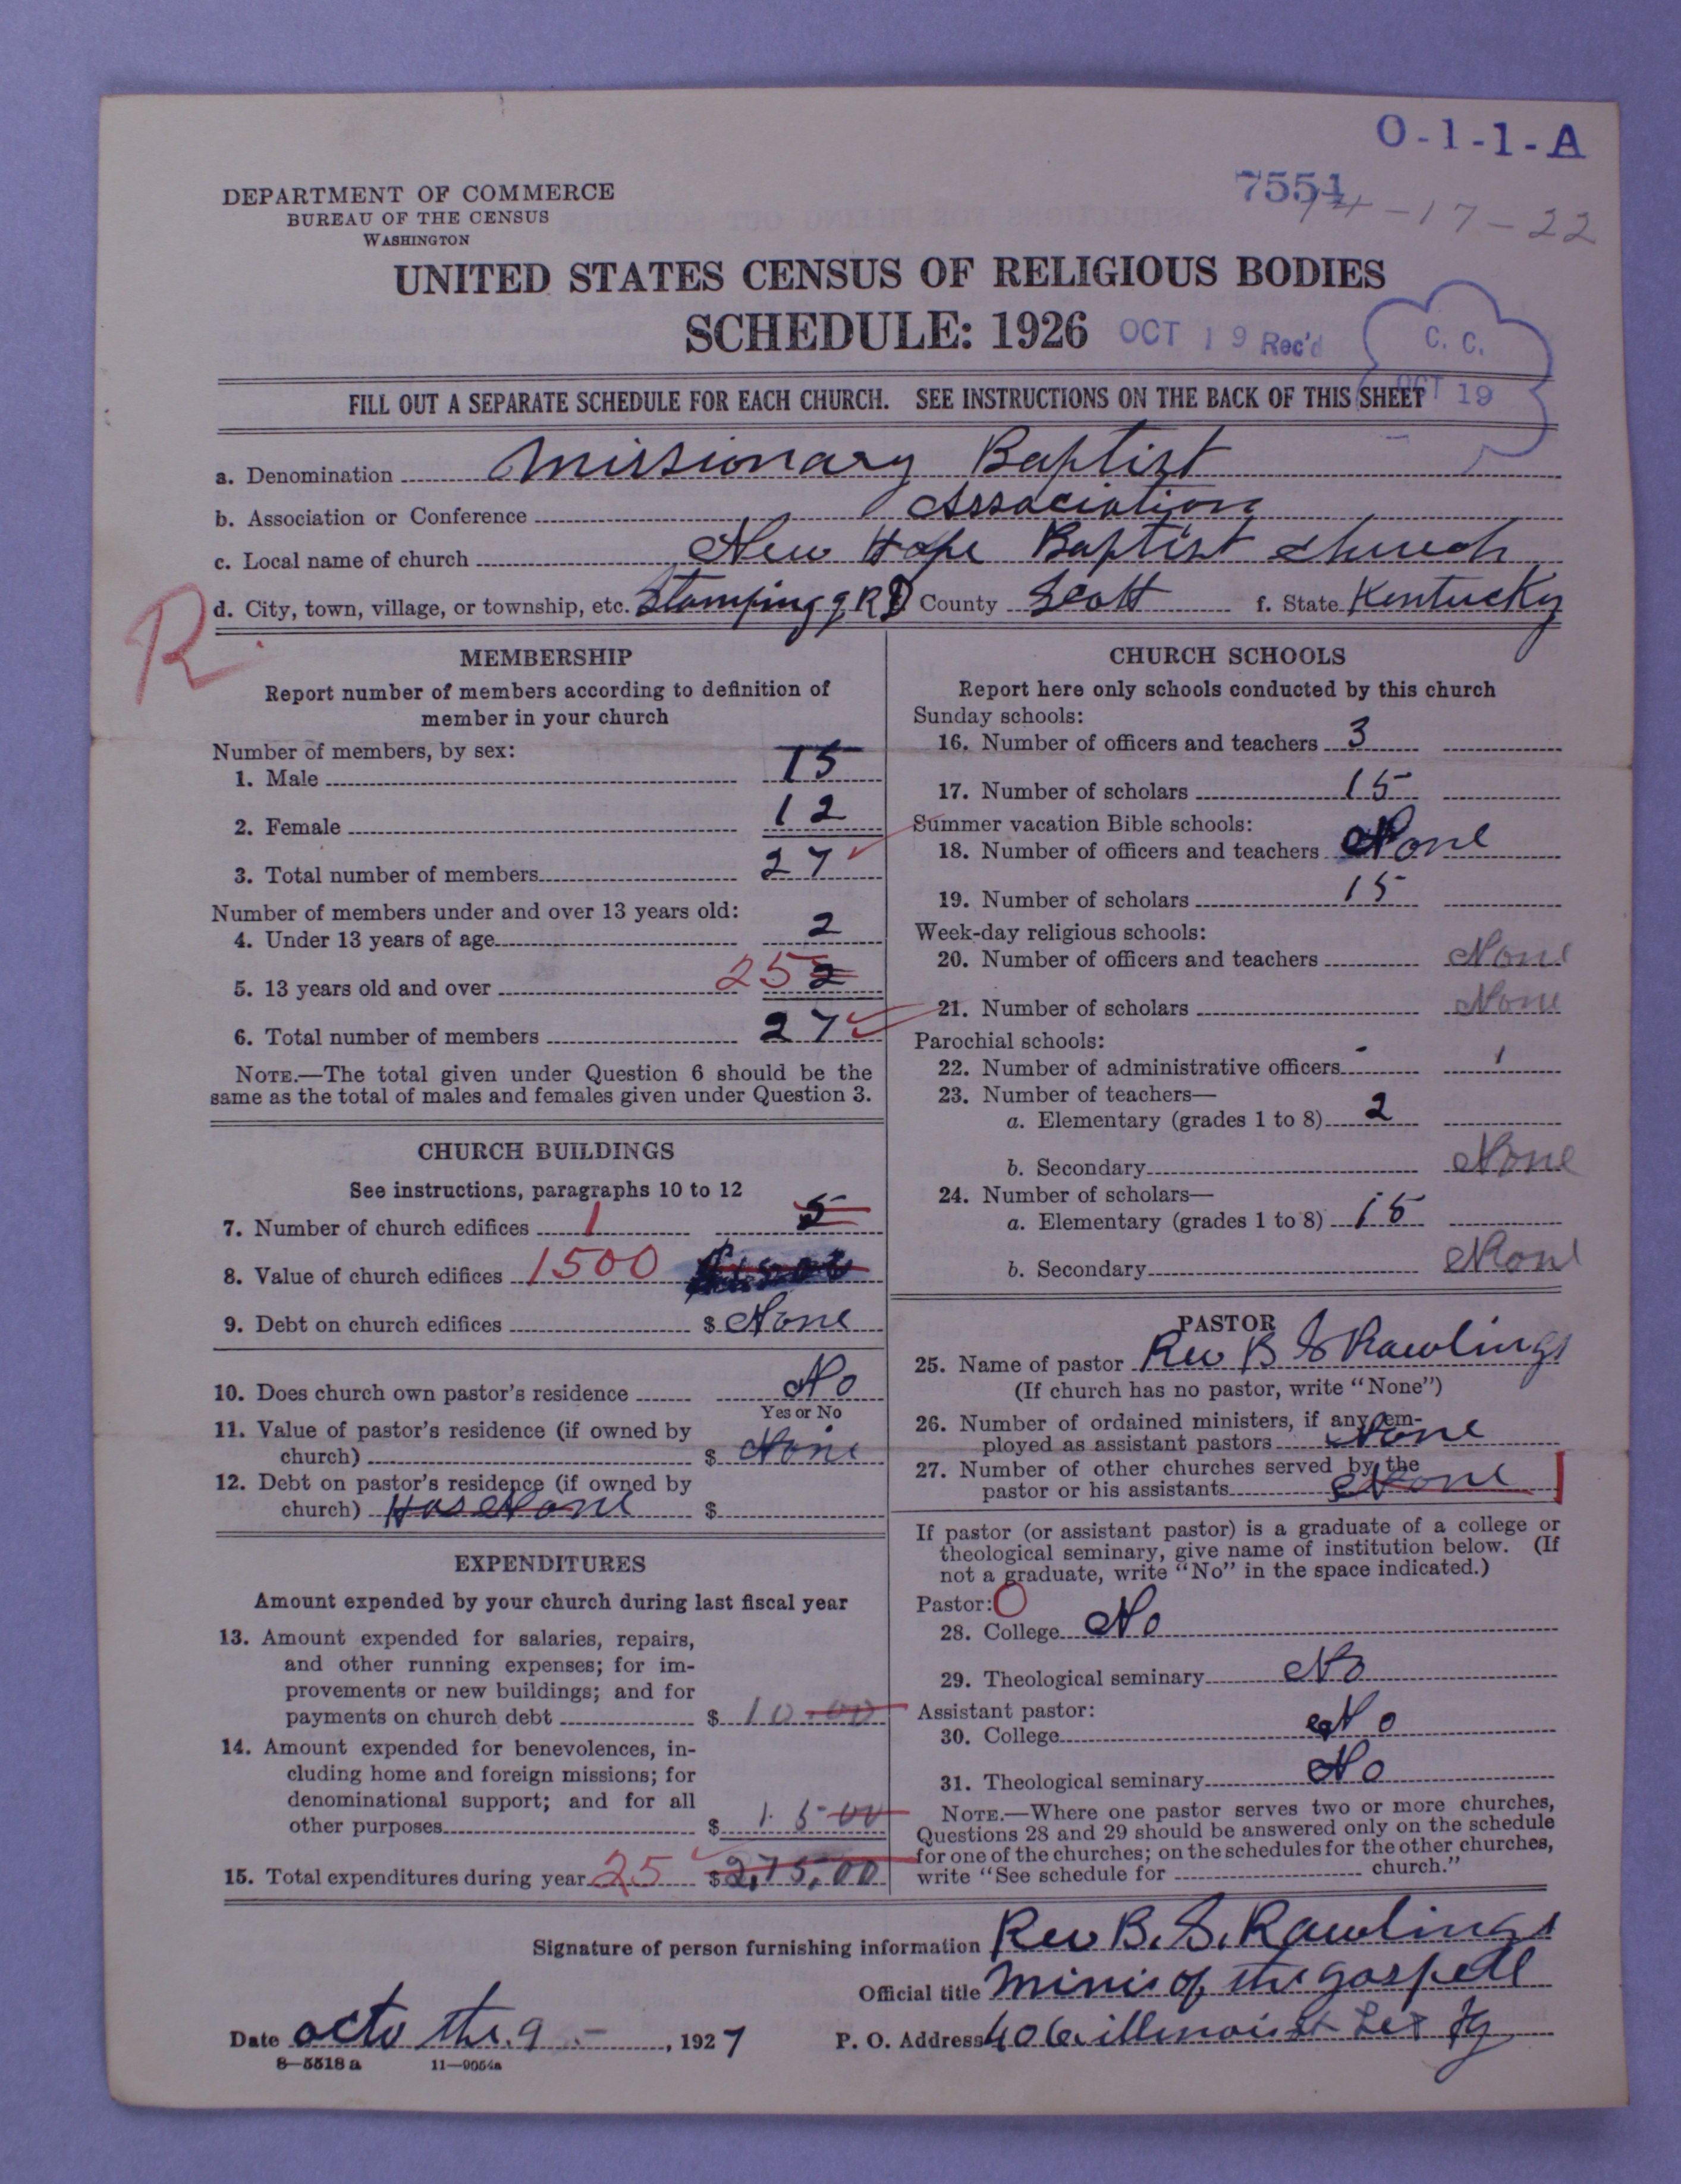 O-1-1-A
7551
14-17-22
DEPARTMENT OF COMMERCE
BUREAU OF THE CENSUS
WASHINGTON
UNITED STATES CENSUS OF RELIGIOUS BODIES
SCHEDULE: 1926
OCT 19 Rec'd
C. C.
OCT 19
FILL OUT A SEPARATE SCHEDULE FOR EACH CHURCH. SEE INSTRUCTIONS ON THE BACK OF THIS SHEET
a. Denomination Missionary Baptist
b. Association or Conference Association
c. Local name of church New Hope Baptist church
d. City, town, village, or township, etc. Stamping g RD County Scott f. State Kentucky
R
MEMBERSHIP
Report number of members according to definition of
member in your church
Number of members, by sex:
1. Male 15
2. Female 12
3. Total number of members 27
Number of members under and over 13 years old:
4. Under 13 years of age 2
5. 13 years old and over 25 2
6. Total number of members 27
NOTE.—The total given under Question 6 should be the
same as the total of males and females given under Question 3.
CHURCH BUILDINGS
See instructions, paragraphs 10 to 12
7. Number of church edifices 1 5
8. Value of church edifices 1500
9. Debt on church edifices $ None
10. Does church own pastor's residence No
Yes or No
11. Value of pastor's residence (if owned by
church) $ None
12. Debt on pastor's residence (if owned by
church) Has None $
EXPENDITURES
Amount expended by your church during last fiscal year
13. Amount expended for salaries, repairs,
and other running expenses; for im-
provements or new buildings; and for
payments on church debt $ 10.00
14. Amount expended for benevolences, in-
cluding home and foreign missions; for
denominational support; and for all
other purposes $ 15 00
15. Total expenditures during year 25 $ 2,75,00
CHURCH SCHOOLS
Report here only schools conducted by this church
Sunday schools:
16. Number of officers and teachers 3
17. Number of scholars 15
Summer vacation Bible schools:
18. Number of officers and teachers None
19. Number of scholars 15
Week-day religious schools:
20. Number of officers and teachers None
21. Number of scholars None
Parochial schools:
22. Number of administrative officers 1
23. Number of teachers—
a. Elementary (grades 1 to 8) 2
b. Secondary None
24. Number of scholars—
a. Elementary (grades 1 to 8) 15
b. Secondary None
PASTOR
25. Name of pastor Rev B S Rawlings
(If church has no pastor, write "None")
26. Number of ordained ministers, if any, em-
ployed as assistant pastors None
27. Number of other churches served by the
pastor or his assistants None
If pastor (or assistant pastor) is a graduate of a college or
theological seminary, give name of institution below. (If
not a graduate, write "No" in the space indicated.)
Pastor: O
28. College No
29. Theological seminary No
Assistant pastor:
30. College No
31. Theological seminary No
NOTE.—Where one pastor serves two or more churches,
Questions 28 and 29 should be answered only on the schedule
for one of the churches; on the schedules for the other churches,
write "See schedule for church."
Signature of person furnishing information Rev B. S. Rawlings
Official title Minis of the gospell
Date octo the 9, 1927 P. O. Address 406 illinois st Lex Ky
8-5518 a 11-9054a